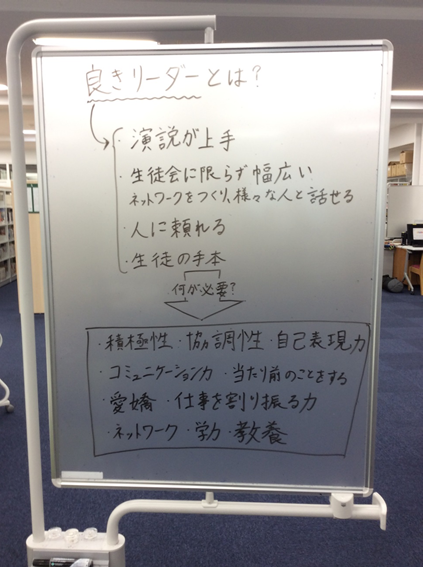 良きリーダーとは?
・演説が上手
・生徒会に限らず幅広い
ネットワークをつくり、様々な人と話せる
・人に頼れる
・生徒の手本
何が必要?
・積極性・協調性・自己表現力
・コミュニケーション力・当たり前のことをする
・愛嬌・仕事を割り振る力
・ネットワーク・学力・教養